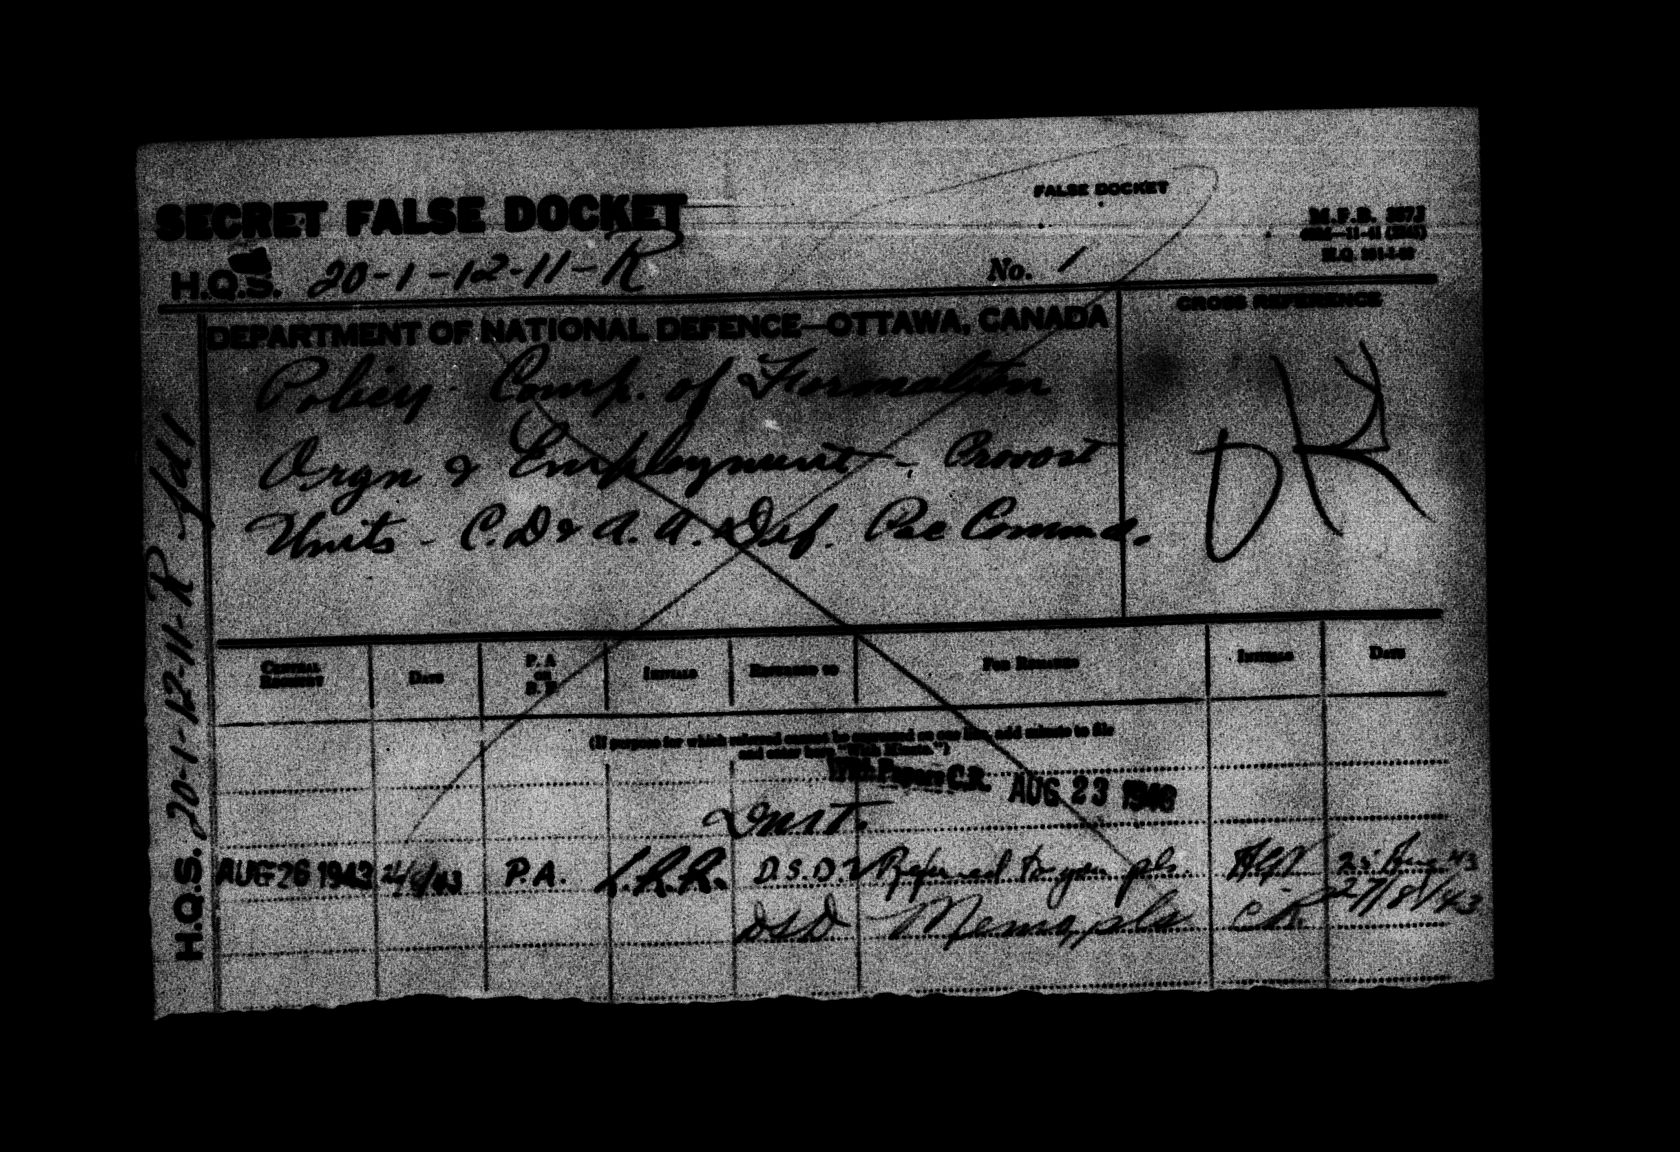 FALSE DOCKET
SECRET FALSE DOCKET
M.F.B.
H.Q.S. 20-1-12-11-R No. 1
DEPARTMENT OF NATIONAL DEFENCE—OTTAWA, CANADA
CROSS REFERENCE
Policy - Comp. of Formation
Orgn & Employment - Provost
Units - C.D & A.A. Def. Pac Comm
H.Q.S. 20-1-12-11-R fd 1
CENTRAL REGISTRY
DATE
P. A. OR B. F.
INITIALS
REFERRED TO
FOR REMARKS
INITIALS
DATE
(If purpose for which referred cannot be expressed on one line, add minute to file
and enter here "With Minute.")
With Papers C.R. AUG 23 1943
AUG 26 1943 P.A. D.S.D. Referred to you pls. 25 Aug 43
DSD Memo, pls C.R. 27/8/43